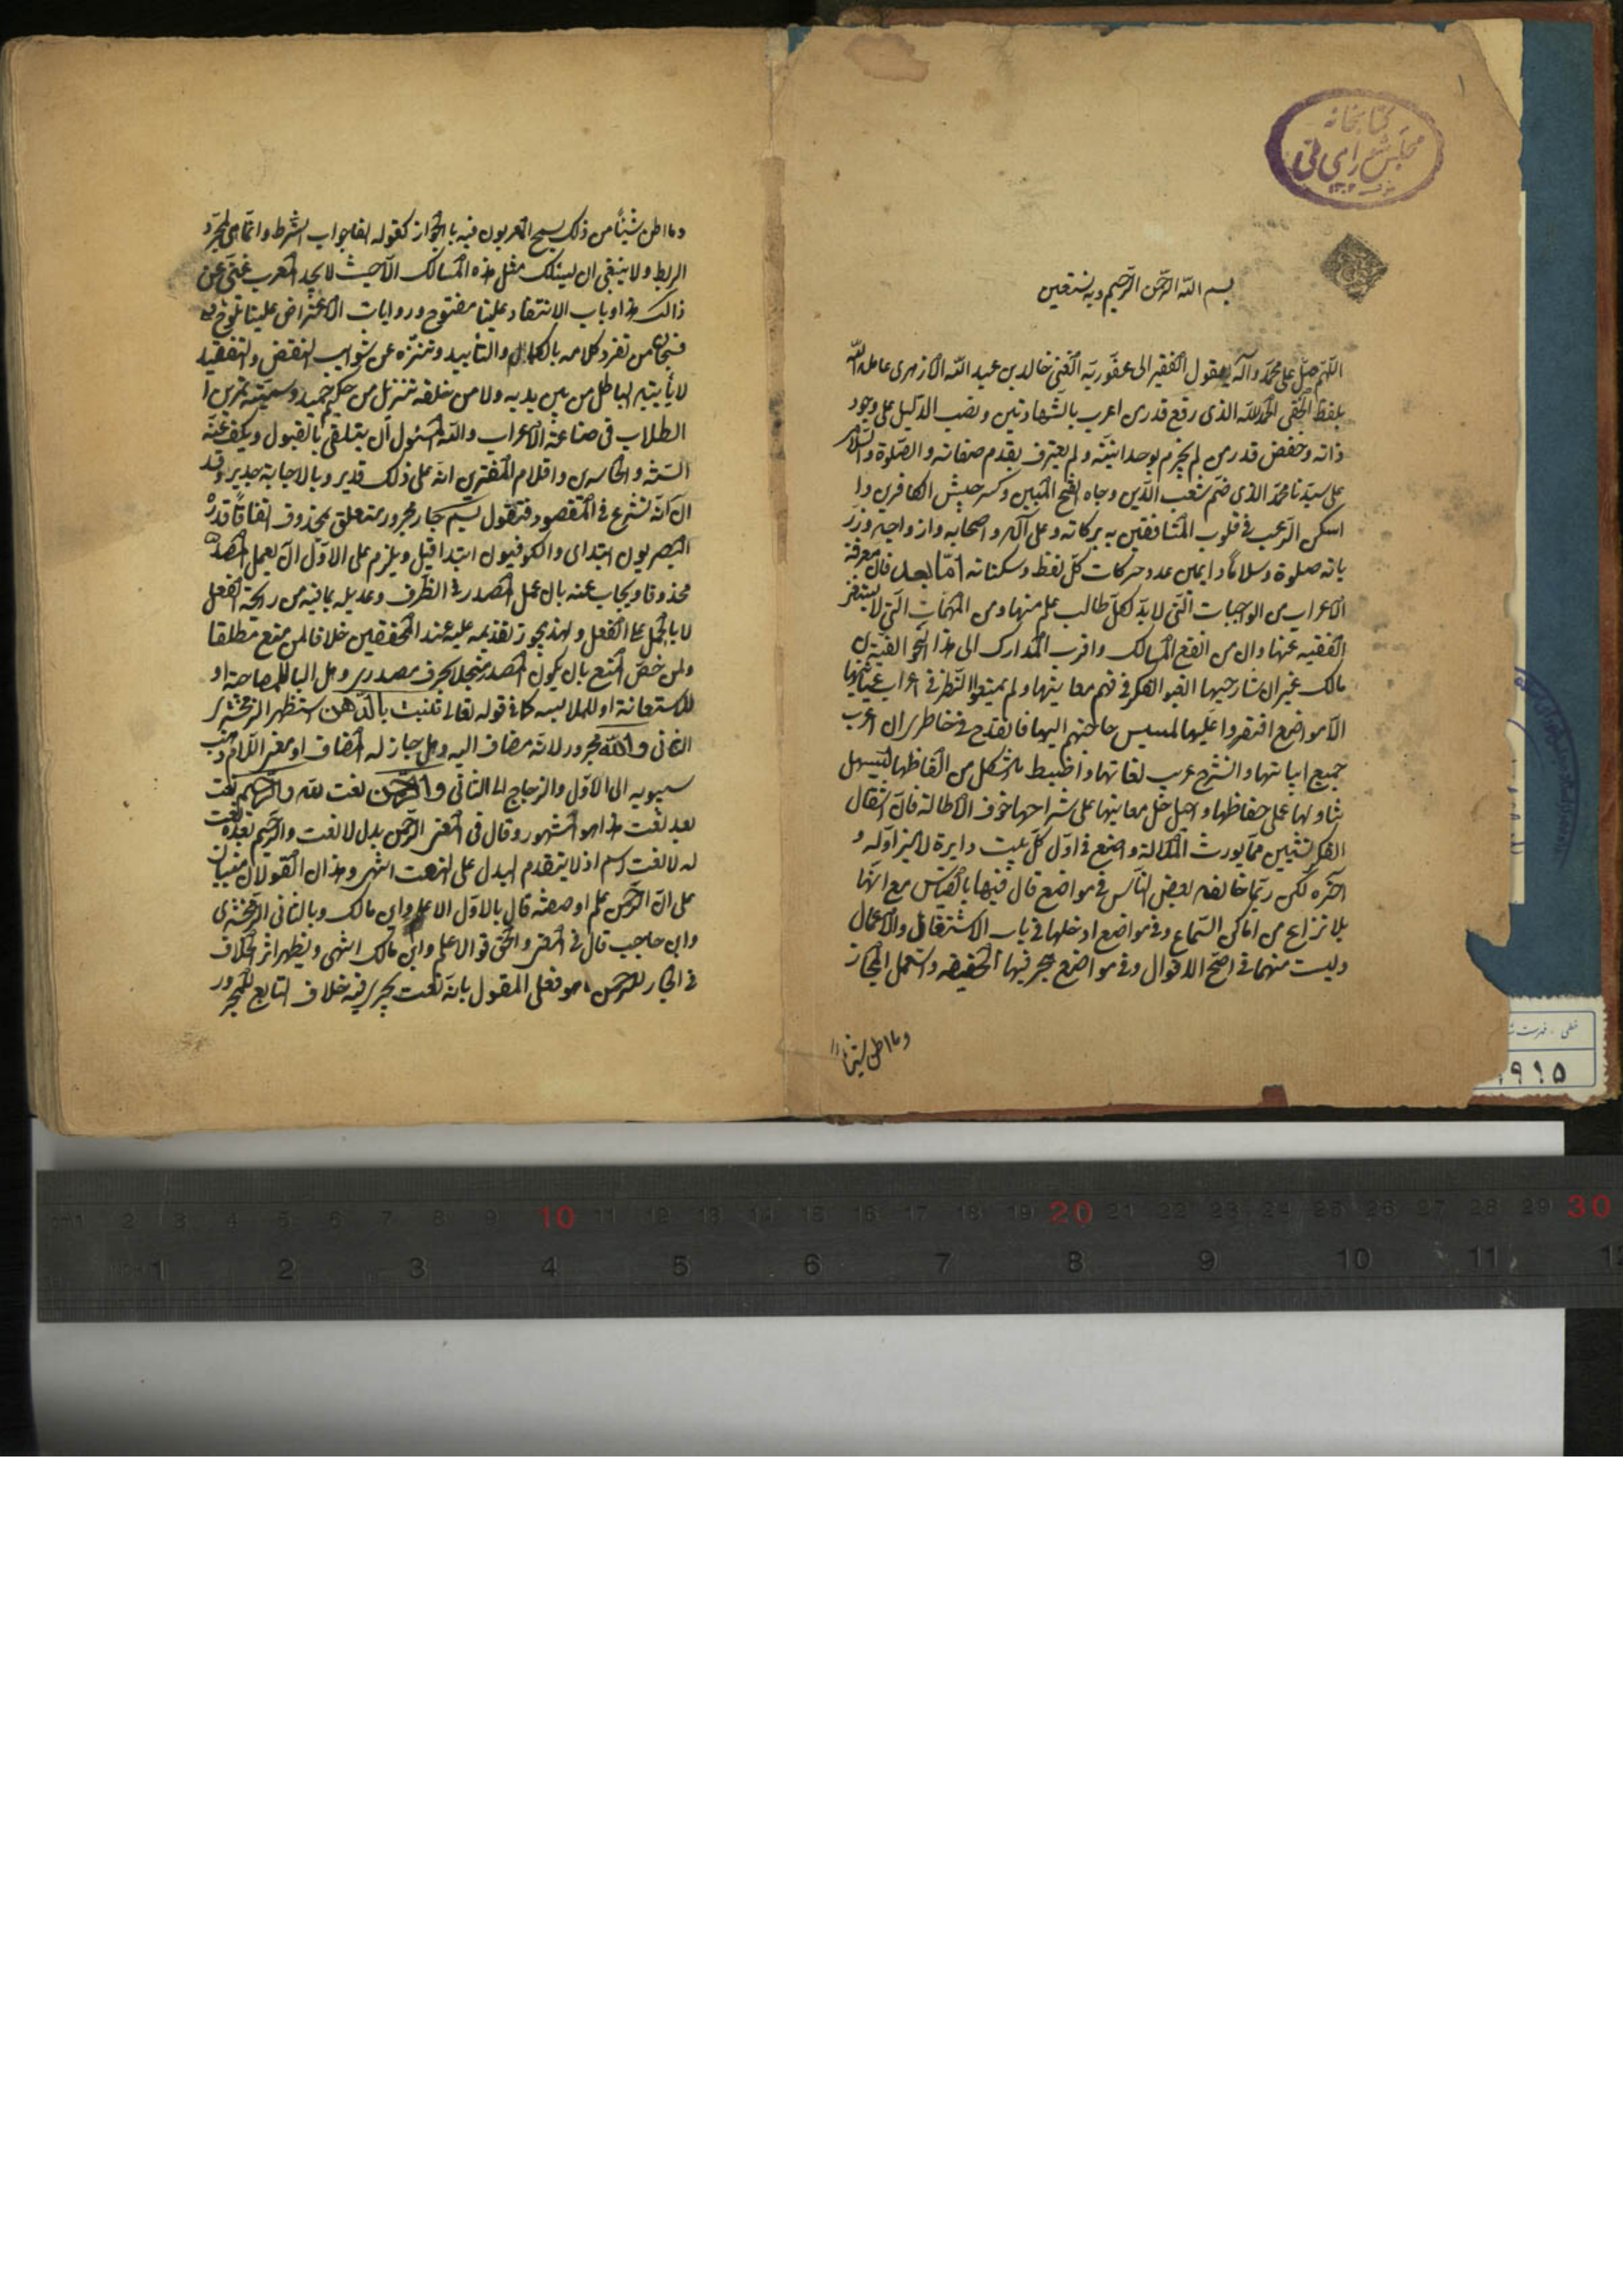 كتابخانه
مجلس شورای ملی
بسم الله الرحمن الرحيم وبه نستعين
اللهم صل على محمد وآله يقول الفقير الى عفو ربه الغنى خالد بن عبد الله الازهرى عامله الله
بلطفه الخفى الحمد لله الذى رفع قدر من اعرب بالشهادتين ونصب الدليل على وجود
ذاته وخفض قدر من لم يجزم بوحدانيته ولم يعترف بقدم صفاته والصلوة والسلام
على سيدنا محمد الذى ضم شعب الدين وجاه الفتح المبين وكسر جيش الكافرين وا
اسكن الرعب فى قلوب المنافقين به بركاته وعلى آله واصحابه وازواجه وذر
ياته صلوة وسلاما دايمين عدد حركات كل لفظ وسكناته اما بعد فان معرفة
الاعراب من الواجبات التى لابد لكل طالب علم منها ومن المهمات التى لا يستغنى
الفقيه عنها وان من انفع المسالك واقرب المدارك الى هذا النحو الفية ابن
مالك غير ان شارحيها الفوا الفكر فى فهم معانيها ولم يمعنوا النظر فى اعراب مبانيها
الا مواضع افتقروا عليها لمسيس حاجتهم اليها فانقدح فى خاطرى ان اعرب
جميع ابياتها واشرح غريب لغاتها واضبط ما اشكل من الفاظها ليسهل
تناولها على حفاظها واحيل حل معانيها على شراحها خوف الاطالة فان انتقال
الفكر لشيئين مما يورث الملالة واضع فى اول كل بيت دايرة لاميز اوله و
آخره لكن ربما خالفه بعض الناس فى مواضع قال فيها بالقياس مع انها
بلا نزاع من اماكن السماع وفى مواضع ادخلها فى باب الاشتغال والاعمال
وليست منهما فى اصح الاقوال وفى مواضع هجر فيها الحقيقه واستعمل المجاز
وما اظن شيئا
وما اظن شيئا من ذلك يسمح المعربون فيه بالجواز كقوله الفا جواب الشرط وانما هى لمجرد
الربط ولا ينبغى ان يسلك مثل هذه المسالك الا حيث لا يجد المعرب غنى عن
ذالك هذا وباب الانتقاد علينا مفتوح وروايات الاعتراض علينا تلوح
فسبحان من تفرد كلامه بالكمال والتأييد وتنزه عن شوايب النقض والتفنيد
لا يأتيه الباطل من بين يديه ولا من خلفه تنزيل من حكيم حميد وسميته تمرين ا
الطلاب فى صناعة الاعراب والله المسئول ان يتلقى بالقبول ويكف عنه
السنة الحاسدين واقلام المفترين انه على ذلك قدير وبالاجابة جدير وقد
آن ان نشرع فى المقصود فنقول بسم جار ومجرور متعلق بمحذوف اتفاقا قدره
البصريون ابتداى والكوفيون ابتدا قيل ويلزم على الاول ان يعمل المصدر
محذوفا ويجاب عنه بان عمل المصدر فى الظرف وعديله بما فيه من رائحة الفعل
لا بالحمل على الفعل ولهذا يجوز تقديمه عليه عند المحققين خلافا لمن منع مطلقا
ولمن خص المنع بان يكون المصدر منحلا بحرف مصدرى وهل البا للمصاحبة او
للاستعانة او للملابسه كما فى قوله تعالى تنبت بالدهن استظهر الزمخشرى
الثانى والله مجرور لانه مضاف اليه وهل جاز له المضاف او معنى اللام ذهب
سيبويه الى الاول والزجاج الى الثانى والرحمن نعت لله والرحيم نعت
بعد نعت هذا هو المشهور وقال فى المغنى الرحمن بدل لا نعت والرحيم بعده نعت
له لا نعت لاسم الله اذ لا يتقدم البدل على النعت انتهى وهذان القولان مبنيان
على ان الرحمن علم او صفة قال بالاول الاعلم وابن مالك وبالثانى الزمخشرى
وابن حاجب قال فى المغنى والحق قول الاعلم وابن مالك انتهى ويظهر اثر الخلاف
فى الجار للرحمن ما هو فعلى القول بانه نعت يجرى فيه خلاف التابع المجرور
خطى . فهرست ش
۹۱۵